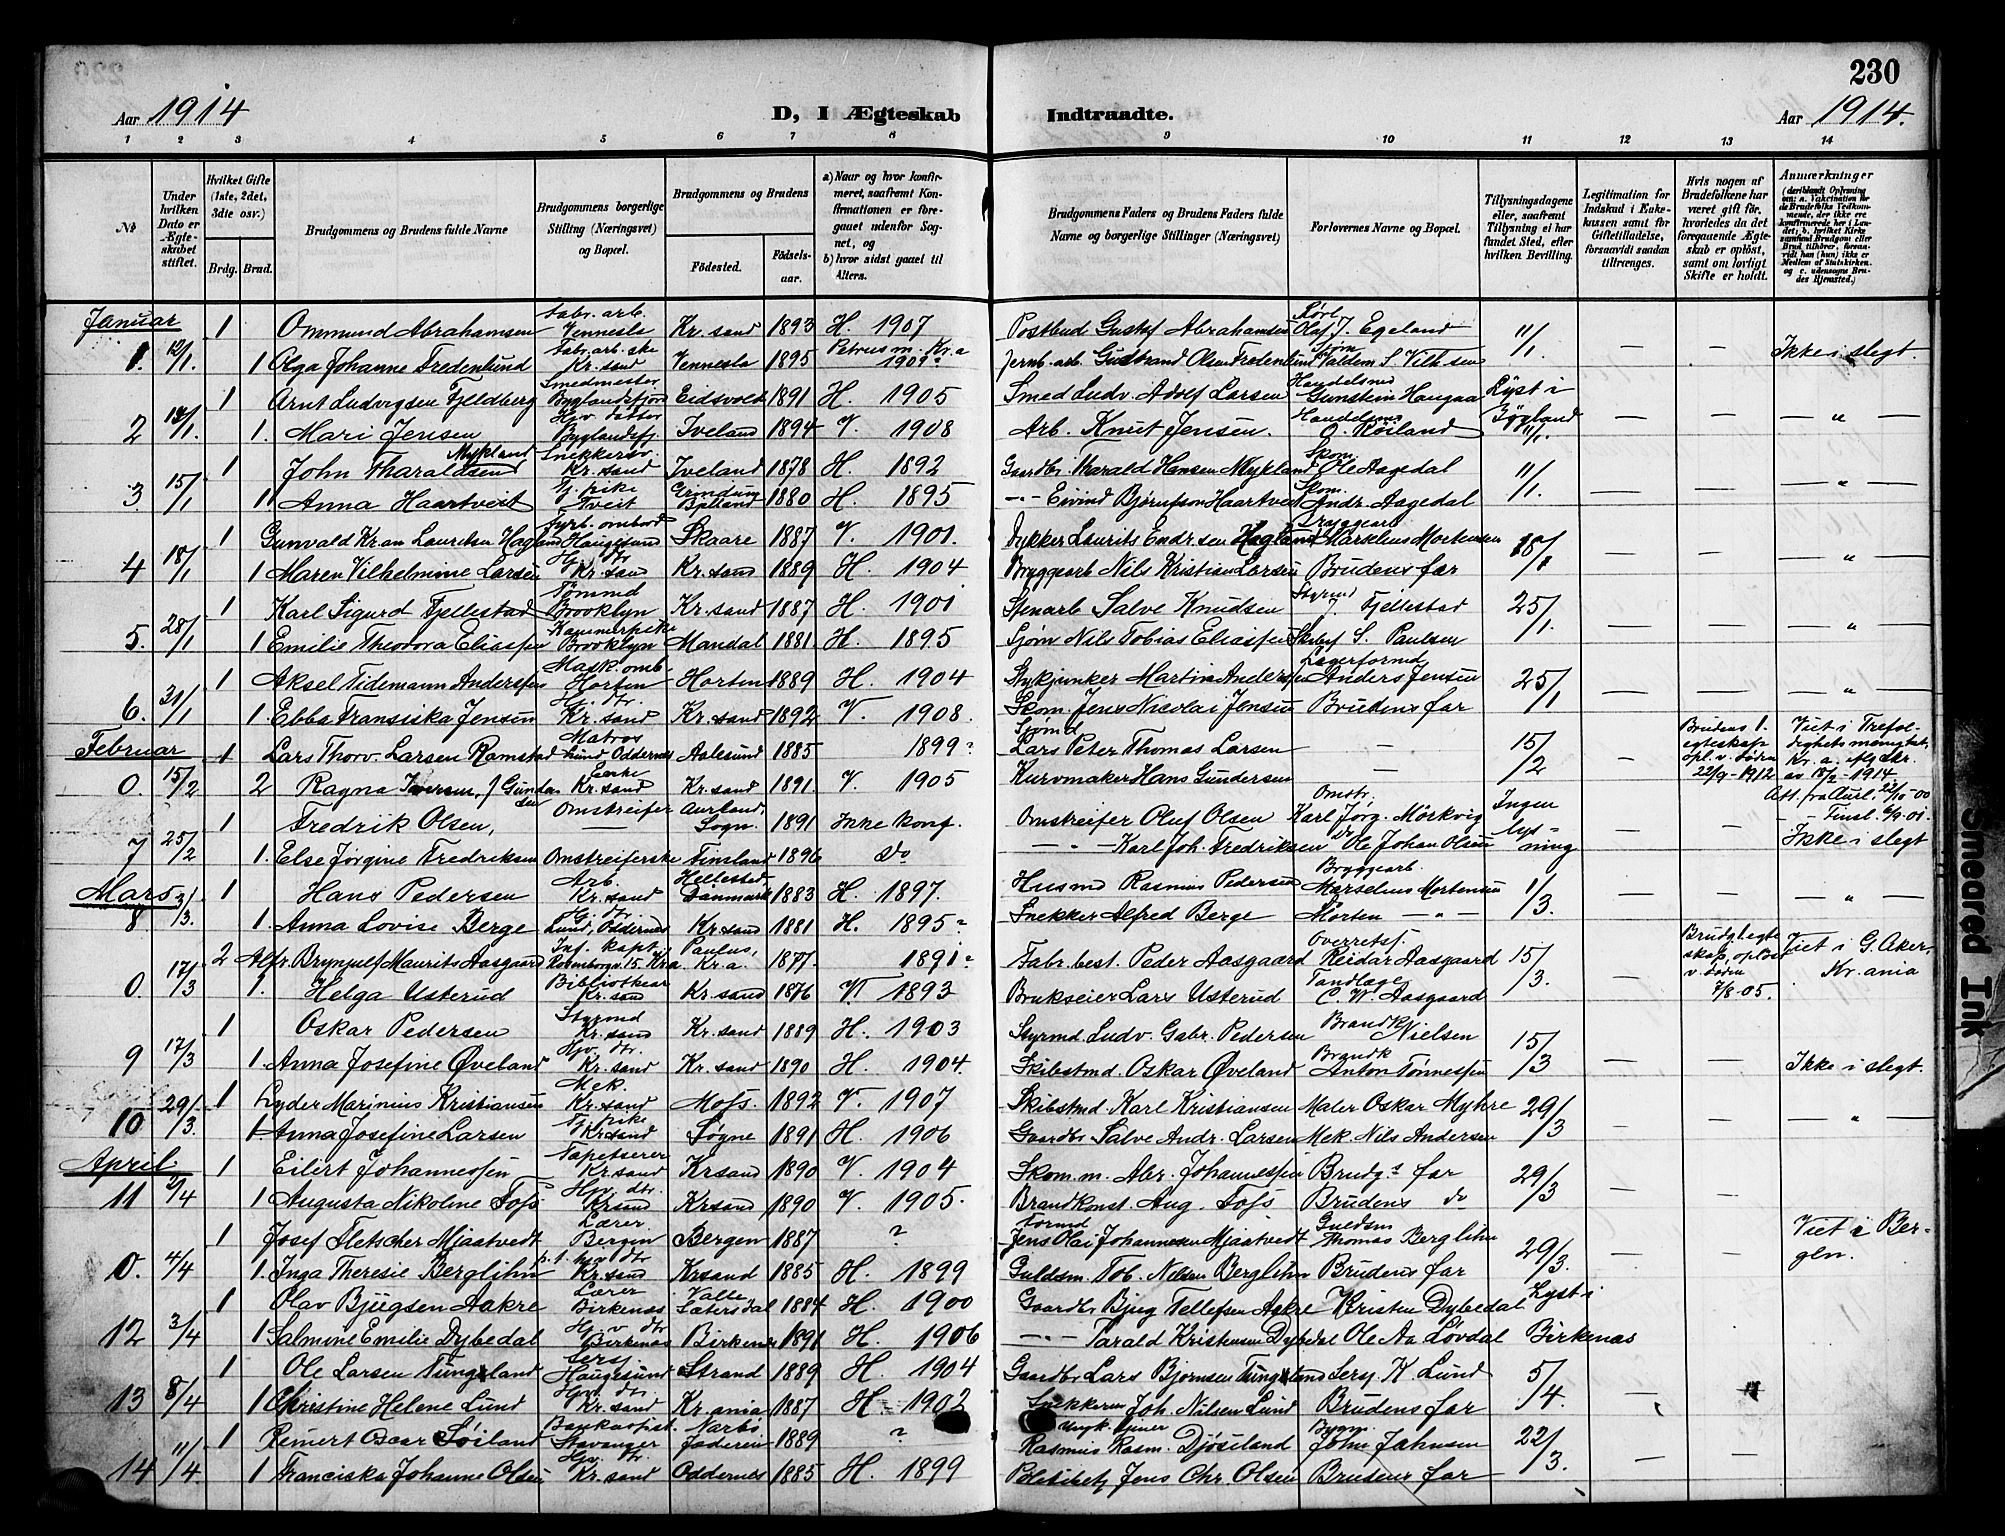 230
Aar 1914 D, I Ægteskab Indtraadte. Aar 1914.
1 2 3 4 5 6 7 8 9 10 11 12 13 14
No
Under hvilken Dato er Ægteskabet stiftet.
Hvilket Gifte (1ste, 2det, 3die osv.)
Brdg. Brud.
Brudgommens og Brudens fulde Navne
Brudgommens borgerlige Stilling (Næringsvei) og Bopæl.
Brudgommens og Brudens
Fødested. Fødselsaar.
a) Naar og hvor konfirmeret, saafremt Konfirmationen er foregaaet udenfor Sognet, og
b) hvor sidst gaaet til Alters.
Brudgommens Faders og Brudens Faders fulde Navne og borgerlige Stillinger (Næringsvei)
Forlovernes Navne og Bopæl.
Tillysningsdagene eller, saafremt Tillysning ei har fundet Sted, efter hvilken Bevilling.
Legitimation for Indskud i Enkekassen samt for Giftetilladelse, forsaavidt saadan tiltrænges.
Hvis nogen af Brudefolkene har været gift før, hvorledes da det foregaaende Ægteskab er opløst, samt om lovligt Skifte er holdt.
Anmærkninger
Januar 1 Ommund Abrahamsen Fabr. arb. Vennesla Kr. sand 1893 H. 1907 Postbud Gustaf Abrahamsen Olaf J. Egeland 11/1
1. 12/1. 1 Olga Johanne Fredenlund Fabr. arb. ske Kr. sand Vennesla 1895 Petrus m. Kr.a 1909? Jernb. arb. Gudbrand Olsen Fredenlund Valdem. S. Vilhsen — — Ikke i slegt.
1 Arnt Ludvigsen Fjeldberg Smedmester Byglandsfjord Eidsvold 1891 H. 1905 Smed Ludv. Adolf Larsen Handelsmd Gunstein Haugaa Lyst i
2 1. Mari Jensen Hjv. datter Byglandsfj. Iveland 1894 V. 1908 Arb. Knut Jensen. Handelsm O. Røisland Bygland 11/1. — — "
1 John Tharaldsen Mykland Snekkersv. Kr. sand Iveland 1878 H. 1892 Gaardbr Tharald Hansen Mykland Skom. Ole Aagedal 11/1.
3 15/1 1 Anna Haartveit Tj. pike Tveit Bjelland 1880 H. 1895 — " — Eivind Bjørnsson Haartveit Skom. Andr. Aagedal — — "
1 Gunvald Kr.an Lauritsen Hagland Fyrb. ombord Haugesund Skaare 1887 V. 1901. Dykker Laurits Endr.sen Hagland Bryggearb Marselius Mortensen 18/1
4 18/1 1 Maren Vilhelmine Larsen Hj. dtr Kr. sand Kr. sand 1889 H. 1904 Bryggearb Nils Kristian Larsen Brudens far — — "
1 Karl Sigurd Fjellestad Tømmd Brooklyn Kr. sand 1887 H. 1901 Stenarb Salve Knudsen Styrmd J. Fjellestad 25/1.
5. 28/1 1 Emilie Theodora Eliassen Kammerpike Brooklyn Mandal 1881 H. 1895 Sjøm Nils Tobias Eliassen S. Paulsen — — "
1 Aksel Tidemann Andersen Mask. omb. Horten Horten 1889 H. 1904 Stykjunker Martin Andersen Lagerformd Anders Jensen 25/1
6. 31/1 1. Ebba Fransiska Jensen Hj. dtr. Kr. sand Kr. sand 1892 V. 1908. Skom. Jens Nicolai Jensen Brudens far — — "
Februar 1 Lars Thorv. Larsen Ramstad Matros Lund Oddernes Aalesund 1885 1899? Sjømd Lars Peter Thomas Larsen — 15/2 — Brudens 1. egteskap opl. v. døden 22/9-1912 Viet i Trefoldighets menighet, Kr. a. iflg. Skr. av 18/2-1914
0. 15/2 2 Ragna Iversen, f. Gundersen Kr. sand Kr. sand 1891. V. 1905 Kurvmaker Hans Gundersen
1 Fredrik Olsen, Omstreifer — Aurland, Sogn. 1891 Ikke konf. Omstreifer Oluf Olsen Omstr. Karl Jørg. Mørkvig Ingen
7 25/2 1. Else Jørgine Fredriksen Omstreiferske Finsland 1896 do — " — Karl Joh. Fredriksen do Ole Johan Olsen lysning — — Ikke i slegt
Mars 1 Hans Pedersen Arb. Kr. sand Hellested Danmark 1883 H. 1897. Husmd Rasmus Pedersen Bryggearb. Marselius Mortensen 1/3.
8 3/3. 1. Anna Lovise Berge Hj. dtr. Lund, Oddernes Kr. sand 1881 H. 1895? Snekker Alfred Berge Morten — " — — — "
2 Alfr. Brynjulf Maurits Aasgaard Inf. kapt. Rosenborgg. 15. Kr.a Paulus, Kr. a. 1877. 1891? Fabr. best. Peder Aasgaard Overretsf. Reidar Aasgaard 15/3. — Brudg. 1 egteskap, opløst v. døden 7/8-05. Viet i G. Aker, Kr. ania
0. 17/3 1. Helga Usterud Bibliothekar Kr. sand Kr. sand 1876 V 1893 Brukseier Lars Usterud Tandlæge C. W. Aasgaard
1 Oskar Pedersen Styrmd Kr. sand Kr. sand 1889 H. 1903 Styrmd. Ludv. Gabr. Pedersen Brandk Nielsen 15/3
9 17/3 1. Anna Josefine Øveland Hjv. dtr. Kr. sand Kr. sand 1890 H. 1904. Skibstmd. Oskar Øveland Brandk Anton Tønnessen — — Ikke i slegt.
1 Lyder Marinius Kristiansen Mek. Kr. sand Moss. 1892 V. 1907 Skibstmd. Karl Kristiansen Maler Oskar Myhre 29/3
10 29/3. 1 Anna Josefine Larsen Tj. pike Kr. sand Søgne 1891 H. 1906 Gaardbr Salve Andr. Larsen Mek Nils Andersen — — "
April 1 Eilert Johannessen Tapetserer Kr. sand Kr sand 1890 V. 1904 Skom. m. Abr. Johannessen Brudg.s far 29/3
11 2/4 1 Augusta Nikoline Foss Hj. dtr. Kr sand Kr sand 1890 V. 1905. Brandkonst. Aug. Foss Brudens do — —
1 Josef Fletscher Mjaatvedt Lærer Bergen Bergen 1887 ? Formd Jens Olai Johannesen Mjaatvedt Guldsm Thomas Berglihn 29/3. Viet i Bergen.
0. 4/4 1. Inga Theresie Berglihn p. t. hj. dtr Kr. sand Kr sand 1885 H. 1899 Guldsm. Tob. Nilsen Berglihn Brudens far — —
1 Olav Bjugsen Aakre Lærer Birkenæs Valle Sætersdal 1884 H. 1900 Gaardbr Bjug Tellefsen Aakre Kristen Dybedal Lyst i
12 3/4 1 Salmine Emilie Dybedal Hj. v dtr Birkenæs Birkenes 1891 H. 1906 — " — Tarald Kristensen Dybedal Ole Aa Løvdal Birkenæs
1 Ole Larsen Tungland Serg Haugesund Strand 1889 H. 1904 Gaardbr Lars Bjørnsen Tungland Serg K Lund 5/4.
13 8/4 1 Christine Helene Lund Hjv. dtr. Kr. sand Kr. ania 1887 H. 1902 Snekkerm Joh. Nilsen Lund Brudens far —
1 Reinert Oscar Bankassist. Stavanger Narbø Jæderen 1889 ? Rasmus Rasm. Djøseland John Jahnsen 22/3.
14 11/4 1 Franciska Johanne Olsen Hjv. dtr. Kr. sand Oddernes 1885 H. 1899 Politibetj. Jens Chr. Olsen Brudens far — —
Smeared Ink